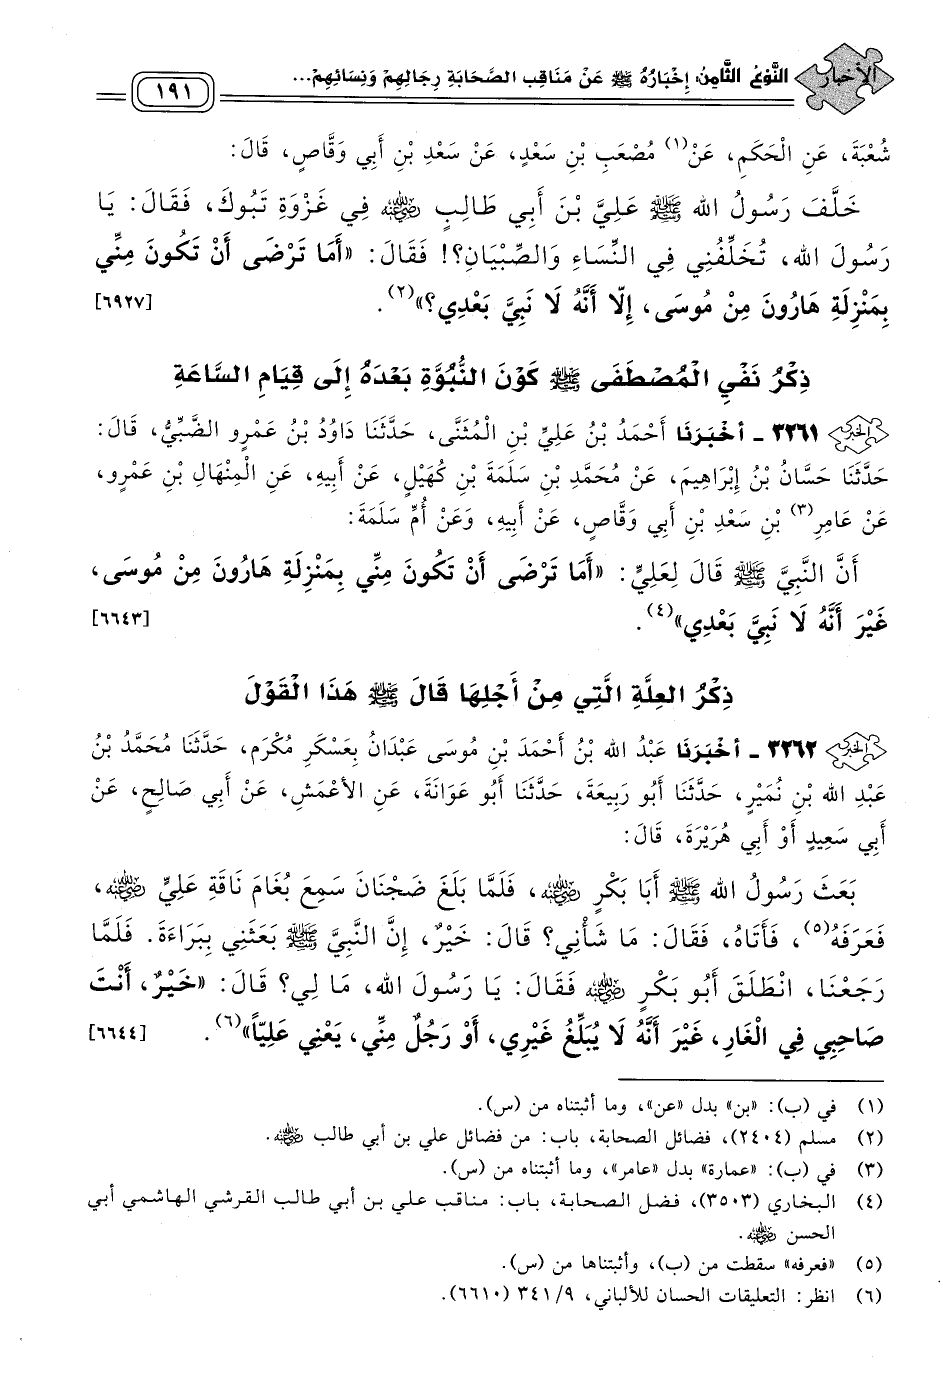 الأخبار
النَّوْعُ الثَّامِنُ: إِخْبَارُهُ ﷺ عَنْ مَنَاقِبِ الصَّحَابَةِ رِجَالِهِمْ وَنِسَائِهِمْ...
١٩١
شُعْبَةَ، عَنِ الْحَكَمِ، عَنْ(١) مُصْعَبِ بْنِ سَعْدٍ، عَنْ سَعْدِ بْنِ أَبِي وَقَّاصٍ، قَالَ:
خَلَّفَ رَسُولُ الله ﷺ عَلِيَّ بْنَ أَبِي طَالِبٍ رضي الله عنه فِي غَزْوَةِ تَبُوكَ، فَقَالَ: يَا
رَسُولَ الله، تُخَلِّفُنِي فِي النِّسَاءِ وَالصِّبْيَانِ؟! فَقَالَ: «أَمَا تَرْضَى أَنْ تَكُونَ مِنِّي
بِمَنْزِلَةِ هَارُونَ مِنْ مُوسَى، إِلَّا أَنَّهُ لَا نَبِيَّ بَعْدِي؟»(٢). [٦٩٢٧]
ذِكْرُ نَفْيِ الْمُصْطَفَى ﷺ كَوْنَ النُّبُوَّةِ بَعْدَهُ إِلَى قِيَامِ السَّاعَةِ
الخبر ٣٢٦١ - أَخْبَرَنَا أَحْمَدُ بْنُ عَلِيِّ بْنِ الْمُثَنَّى، حَدَّثَنَا دَاوُدُ بْنُ عَمْرٍو الضَّبِّيُّ، قَالَ:
حَدَّثَنَا حَسَّانُ بْنُ إِبْرَاهِيمَ، عَنْ مُحَمَّدِ بْنِ سَلَمَةَ بْنِ كُهَيْلٍ، عَنْ أَبِيهِ، عَنِ الْمِنْهَالِ بْنِ عَمْرٍو،
عَنْ عَامِرِ(٣) بْنِ سَعْدِ بْنِ أَبِي وَقَّاصٍ، عَنْ أَبِيهِ، وَعَنْ أُمِّ سَلَمَةَ:
أَنَّ النَّبِيَّ ﷺ قَالَ لِعَلِيٍّ: «أَمَا تَرْضَى أَنْ تَكُونَ مِنِّي بِمَنْزِلَةِ هَارُونَ مِنْ مُوسَى،
غَيْرَ أَنَّهُ لَا نَبِيَّ بَعْدِي»(٤). [٦٦٤٣]
ذِكْرُ العِلَّةِ الَّتِي مِنْ أَجْلِهَا قَالَ ﷺ هَذَا الْقَوْلَ
الخبر ٣٢٦٢ - أَخْبَرَنَا عَبْدُ الله بْنُ أَحْمَدَ بْنِ مُوسَى عَبْدَانُ بِعَسْكَرِ مُكْرَمٍ، حَدَّثَنَا مُحَمَّدُ بْنُ
عَبْدِ الله بْنِ نُمَيْرٍ، حَدَّثَنَا أَبُو رَبِيعَةَ، حَدَّثَنَا أَبُو عَوَانَةَ، عَنِ الأَعْمَشِ، عَنْ أَبِي صَالِحٍ، عَنْ
أَبِي سَعِيدٍ أَوْ أَبِي هُرَيْرَةَ، قَالَ:
بَعَثَ رَسُولُ الله ﷺ أَبَا بَكْرٍ رضي الله عنه، فَلَمَّا بَلَغَ ضَجْنَانَ سَمِعَ بُغَامَ نَاقَةِ عَلِيٍّ رضي الله عنه،
فَعَرَفَهُ(٥)، فَأَتَاهُ، فَقَالَ: مَا شَأْنِي؟ قَالَ: خَيْرٌ، إِنَّ النَّبِيَّ ﷺ بَعَثَنِي بِبَرَاءَةَ. فَلَمَّا
رَجَعْنَا، انْطَلَقَ أَبُو بَكْرٍ رضي الله عنه فَقَالَ: يَا رَسُولَ الله، مَا لِي؟ قَالَ: «خَيْرٌ، أَنْتَ
صَاحِبِي فِي الْغَارِ، غَيْرَ أَنَّهُ لَا يُبَلِّغُ غَيْرِي، أَوْ رَجُلٌ مِنِّي، يَعْنِي عَلِيّاً»(٦). [٦٦٤٤]
(١) في (ب): «بن» بدل «عن»، وما أثبتناه من (س).
(٢) مسلم (٢٤٠٤)، فضائل الصحابة، باب: من فضائل علي بن أبي طالب رضي الله عنه.
(٣) في (ب): «عمارة» بدل «عامر»، وما أثبتناه من (س).
(٤) البخاري (٣٥٠٣)، فضل الصحابة، باب: مناقب علي بن أبي طالب القرشي الهاشمي أبي
الحسن رضي الله عنه.
(٥) «فعرفه» سقطت من (ب)، وأثبتناها من (س).
(٦) انظر: التعليقات الحسان للألباني، ٣٤١/٩ (٦٦١٠).